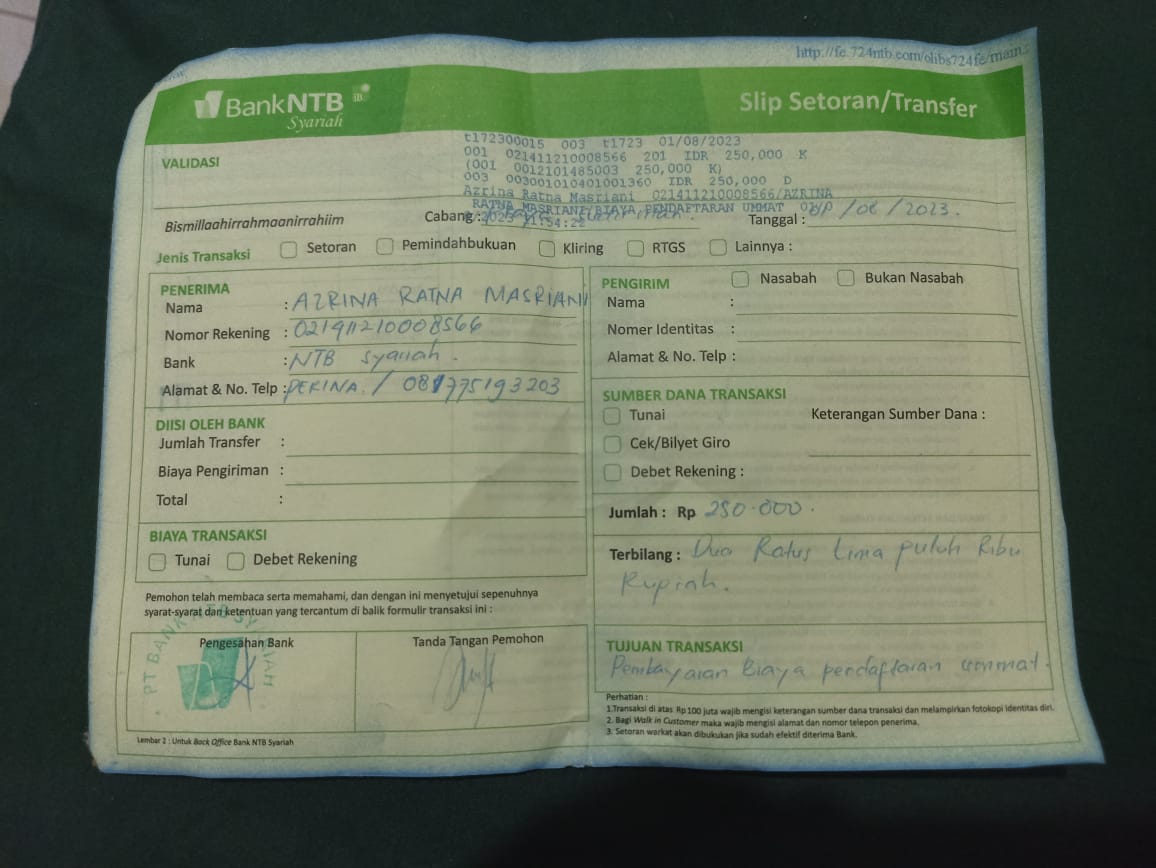 http://fe.724ntb.com/olibs724fe/main.
BankNTB iB
Syariah
Slip Setoran/Transfer
VALIDASI
t172300015 003 t1723 01/08/2023
001 021411210008566 201 IDR 250,000 K
(001 0012101485003 250,000 K)
003 003001010401001360 IDR 250,000 D
Azrina Ratna Masriani 021411210008566/AZRINA
RATNA MASRIANI/BIAYA PENDAFTARAN UMMAT
Bismillaahirrahmaanirrahiim
Cabang :
Tanggal : /08/2023.
Jenis Transaksi Setoran Pemindahbukuan Kliring RTGS Lainnya :
PENERIMA
Nama : AZRINA RATNA MASRIANI
Nomor Rekening : 021411210008566
Bank : NTB Syariah.
Alamat & No. Telp : /
DIISI OLEH BANK
Jumlah Transfer :
Biaya Pengiriman :
Total :
BIAYA TRANSAKSI
Tunai Debet Rekening
Pemohon telah membaca serta memahami, dan dengan ini menyetujui sepenuhnya
syarat-syarat dan ketentuan yang tercantum di balik formulir transaksi ini :
Pengesahan Bank
PT BANK NTB SYARIAH
Tanda Tangan Pemohon
Lembar 2 : Untuk Back Office Bank NTB Syariah
PENGIRIM Nasabah Bukan Nasabah
Nama :
Nomer Identitas :
Alamat & No. Telp :
SUMBER DANA TRANSAKSI
Tunai Keterangan Sumber Dana :
Cek/Bilyet Giro
Debet Rekening :
Jumlah : Rp 250.000.
Terbilang : Dua Ratus Lima puluh Ribu
Rupiah.
TUJUAN TRANSAKSI
Pembayaran Biaya pendaftaran ummat.
Perhatian :
1.Transaksi di atas Rp 100 juta wajib mengisi keterangan sumber dana transaksi dan melampirkan fotokopi identitas diri.
2. Bagi Walk in Customer maka wajib mengisi alamat dan nomor telepon penerima.
3. Setoran warkat akan dibukukan jika sudah efektif diterima Bank.